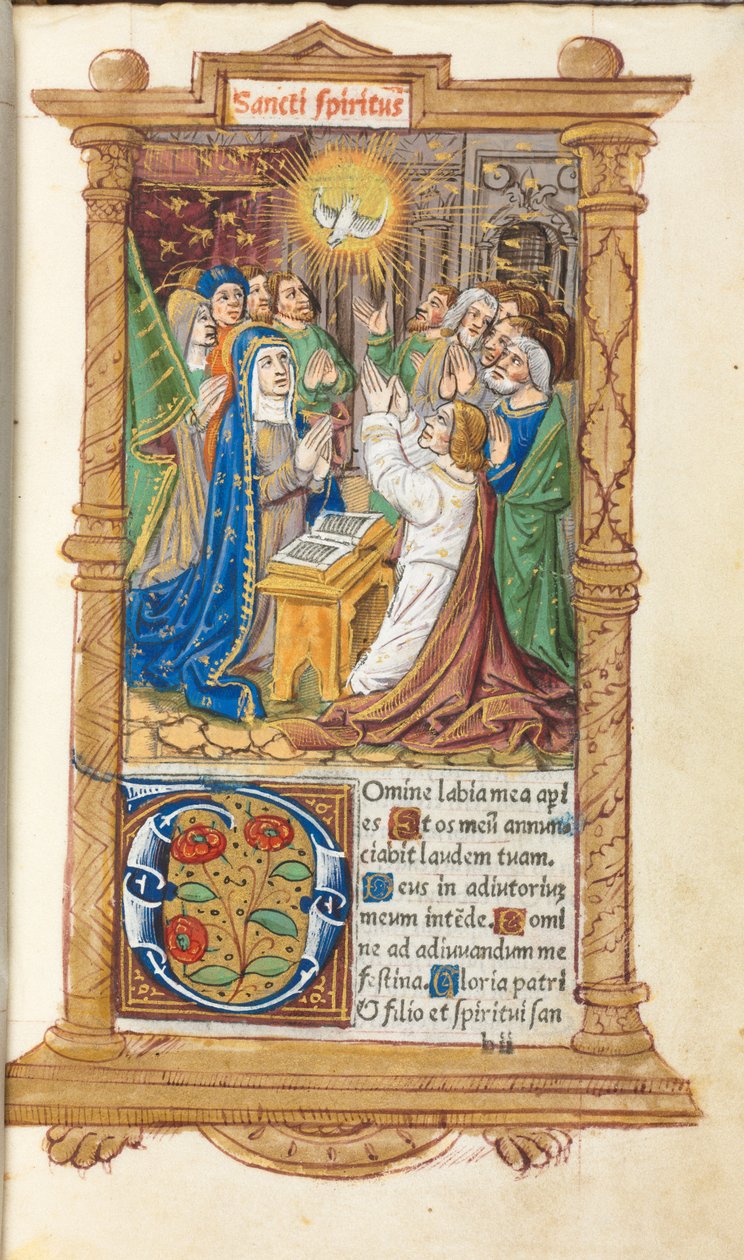 Sancti spiritus
Domine labia mea aperi
es Et os meū annun
ciabit laudem tuam.
Deus in adiutoriuꝫ
meum intēde. Domi
ne ad adiuvandum me
festina. Gloria patri
& filio et spiritui san
b ii